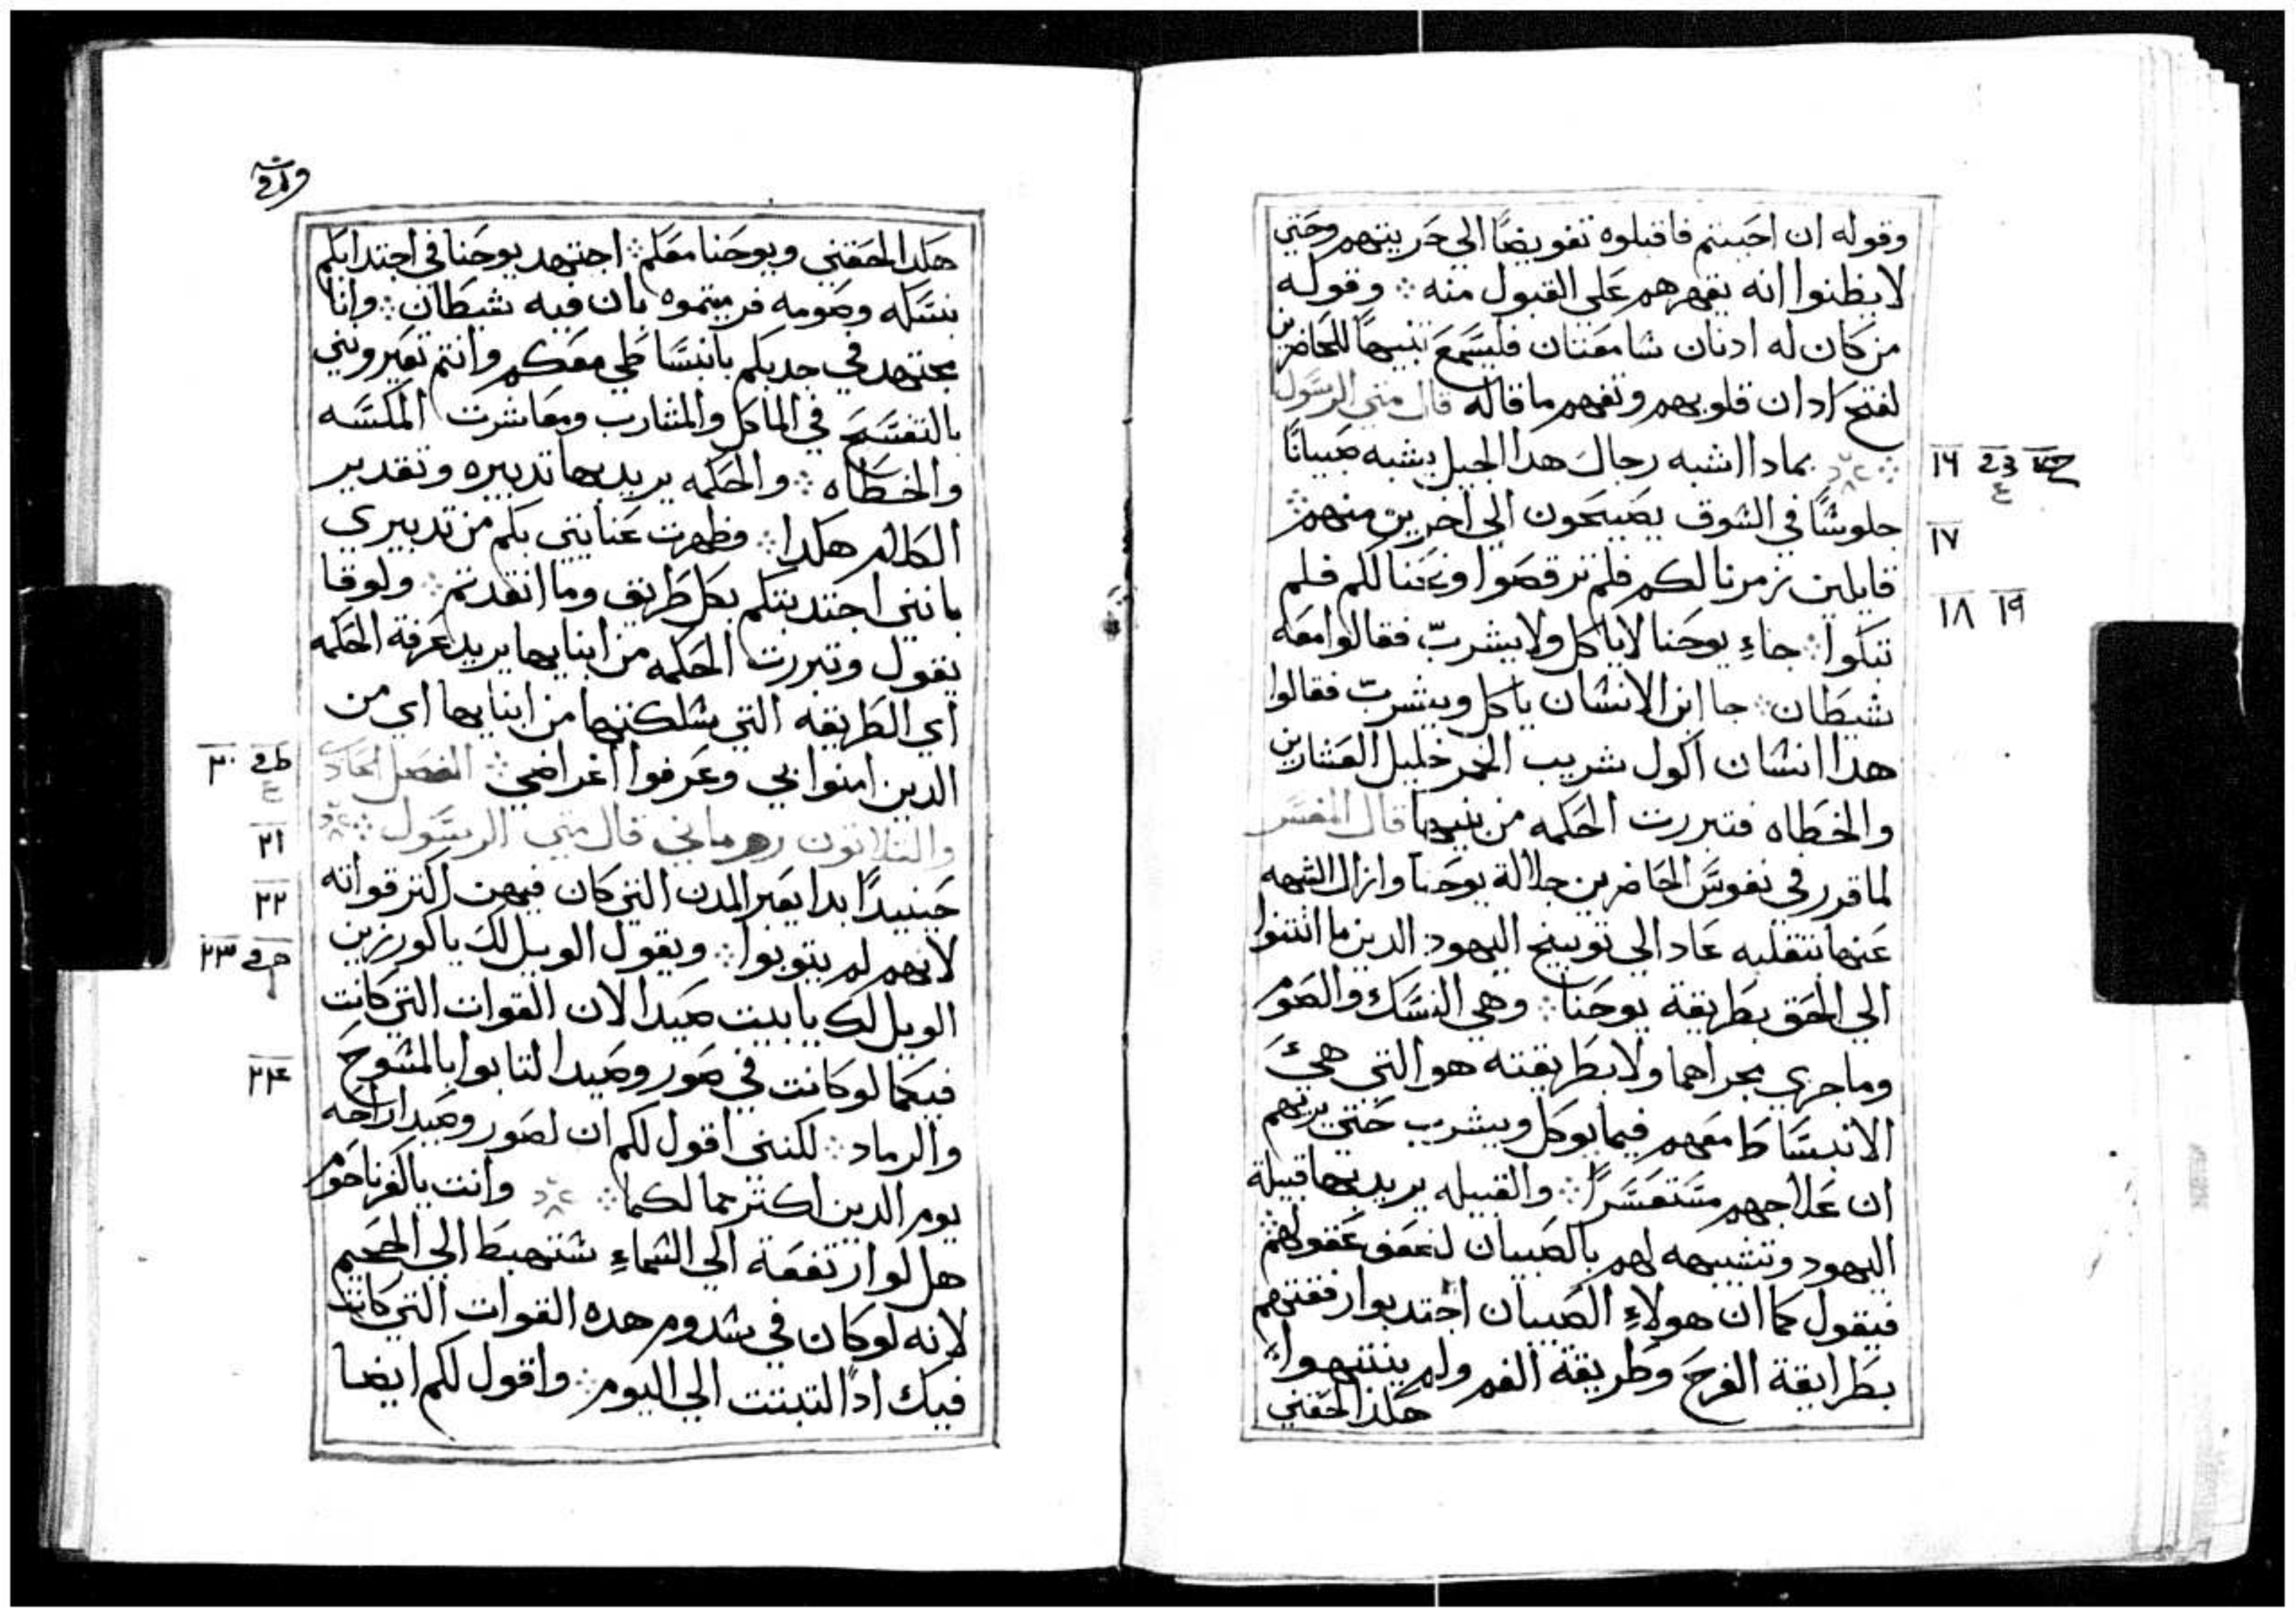 وقوله ان احببتم فاقبلوه تفويضًا الي حريتهم وحتي
لا يظنوا انه يقهرهم علي القبول منه ⁘ وقوله
من كان له ادنان سامعتان فليسمع تنبيهًا للحاضرين
لفتح ادان قلوبهم وتفهم ما قاله قال متي الرسول
⁘ بمادا اشبه رجال هدا الجيل يشبه صبيانًا
جلوسًا في السوق يصيحون الي اخرين منهم ⁘
قايلين زمرنا لكم فلم ترقصوا ونحنا لكم فلم
تبكوا ⁘ جاء يوحنا لا ياكل ولا يشرب فقالوا معه
شيطان ⁘ جا ابن الانسان ياكل ويشرب فقالوا
هدا انسان اكول شريب الخمر خليل العشارين
والخطاه فتبررت الحكمه من بنيها قال المفسر
لما قرر في نفوس الحاضرين جلالة يوحنا وازال الشبهه
عنها تنقلبه عاد الي توبيخ اليهود الدين ما انتنوا
الي الحق بطريقة يوحنا ⁘ وهي النسك والصوم
وما جري مجراهما ولا بطريقته هو التي هي
الانبساط معهم فيما يوكل ويشرب حتي يريهم
ان علاجهم مستعسرًا ⁘ والقبيله يريد بها قبيلة
اليهود وتشبيهه لهم بالصبيان لضعف عقولهم ⁘
فيقول كما ان هولاء الصبيان اجتدبوا رفقتهم
بطرايقة الفرح وطريقة الغم ولم ينتبهوا ⁘
هكدا لحقني
هكدا لحقني ويوحنا معكم ⁘ اجتهد يوحنا في اجتدابكم
بنسكه وصومه فرميتموه بان فيه شيطان ⁘ وانا
مجتهد في جدبكم بانبساطي معكم وانتم تعيروني
بالتفسح في الماكل والمشارب ومعاشرت المكسه
والخطاه ⁘ والحكمه يريد بها تدبيره وتقدير
الكلام هكدا ⁘ فظهرت عنايتي بكم من تدبيري
بانني اجتدبتكم بكل طريق وما انقدتم ⁘ ولوقا
يقول وتبررت الحكمه من ابنايها يريد عرفة الحكمه
اي الطريقه التي سلكتها من ابنايها اي من
الدين امنوا بي وعرفوا اغراضي ⁘ الفصل الحادي
والتلاتون روماني قال متي الرسول ⁘
حينيدًا بدا يعير المدن التي كان فيهن اكتر قواته
لانهم لم يتوبوا ⁘ ويقول الويل لك يا كورزين
الويل لك يا بيت صيدا لان القوات التي كانت
فيكما لو كانت في صور وصيدا لتابوا بالمسوح
والرماد ⁘ لكنني اقول لكم ان لصور وصيدا راحه
يوم الدين اكتر مما لكما ⁘ وانت يا كفرناحوم
هل لو ارتفعة الي السماء ستهبط الي الجحيم
لانه لو كان في سدوم هده القوات التي كانت
فيك ادًا لتبتت الي اليوم ⁘ واقول لكم ايضا
١٦
١٧
١٨ ١٩
٢٠
٢١
٢٢
٢٣
٢٤